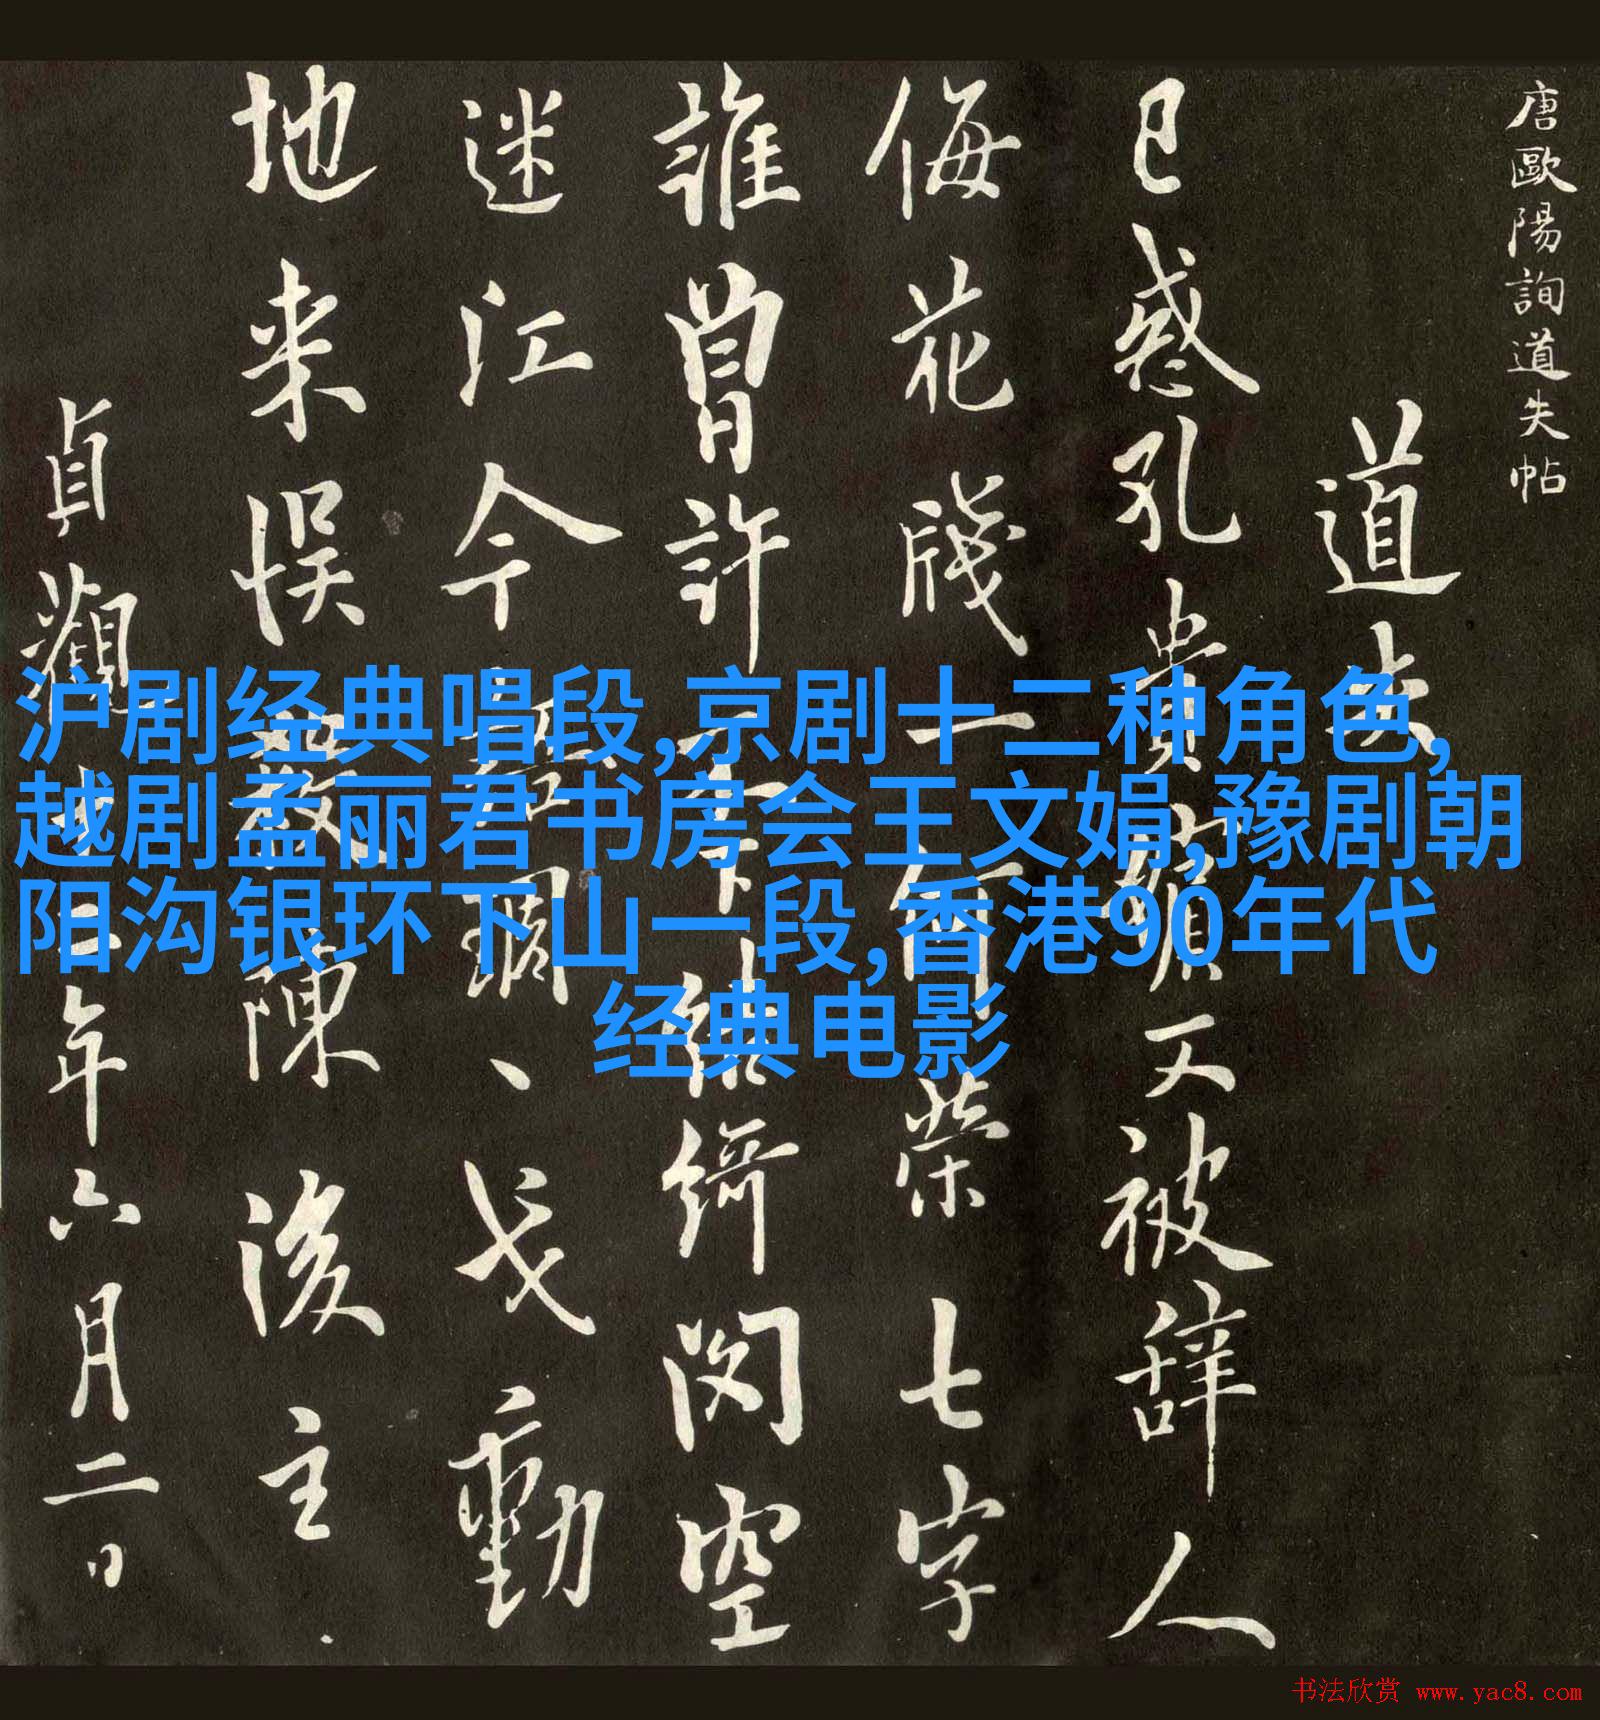 唐歐陽詢道失帖
道失
已惑孔貴嬪又被辞人
侮花牋一何榮七字
誰曾許不下結綺閔空
迷江令調、戈動
地来悮陳後主
貞觀十二年六月二日
沪剧经典唱段,京剧十二种角色,
越剧孟丽君书房会王文娟,豫剧朝
阳沟银环下山一段,香港90年代
经典电影
书法欣赏 www.yac8.com